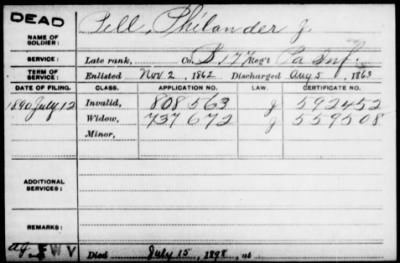 DEAD
NAME OF SOLDIER: Tell, Philander J.
SERVICE: Late rank, Co. D 177 Reg't Pa Inf.
TERM OF SERVICE: Enlisted Nov. 2, 1862 Discharged Aug 5, 1863
DATE OF FILING. CLASS. APPLICATION NO. LAW. CERTIFICATE NO.
1890 July 12 Invalid, 808563 J 592452
Widow, 737672 J 559508
Minor,
ADDITIONAL SERVICES:
REMARKS:
Died July 15, 1898, at